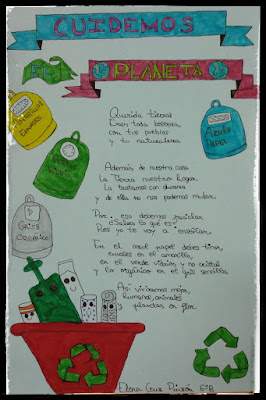 CUIDEMOS
EL
PLANETA
Querida tierra
Eres toda belleza,
con tus pueblos
y tu naturaleza.
Además de nuestra casa
La Tierra nuestro hogar
La tratamos con
y de ella no nos podemos mudar.
Por eso debemos reciclar
¿Sabes lo que es?
Pues yo te voy a enseñar.
En el azul papel debes tirar,
envases en el amarillo,
en el verde vidrios y no cristal
y lo orgánico en el gris sencillo
Así viviremos mejor,
humanos, animales
y plantas en flor.
Amarillo
Envases
Verde
Azul
Papel
Gris
Orgánico
Elena Cruz 5ºB